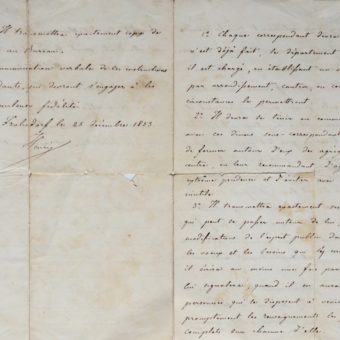 Il transmettra exactement copie de
au Bureau.
communication verbale de ces instructions
dants, qui devront s'engager à les
fidélité
Frohsdorf le 25 décembre 1853
1º Chaque correspondant devra
n'est déjà fait, le département
il est chargé, en établissant un
par arrondissement, canton, en co
circonstances le permettent.
2º Il devra se tenir en commun
avec ces divers sous-correspondant
de former autour d'eux des
centre, en leur recommandant
extrême prudence et d'éviter avec
inutile.
3º Il transmettra exactement
qui peut se passer autour de lui
modifications de l'esprit public dan
les vœux et les besoins qui s'y
il écrira au moins une fois par
signature, quand il en aura
personnes qui se disposent à venir
promptement les renseignements les
complets sur chacune d'elles.